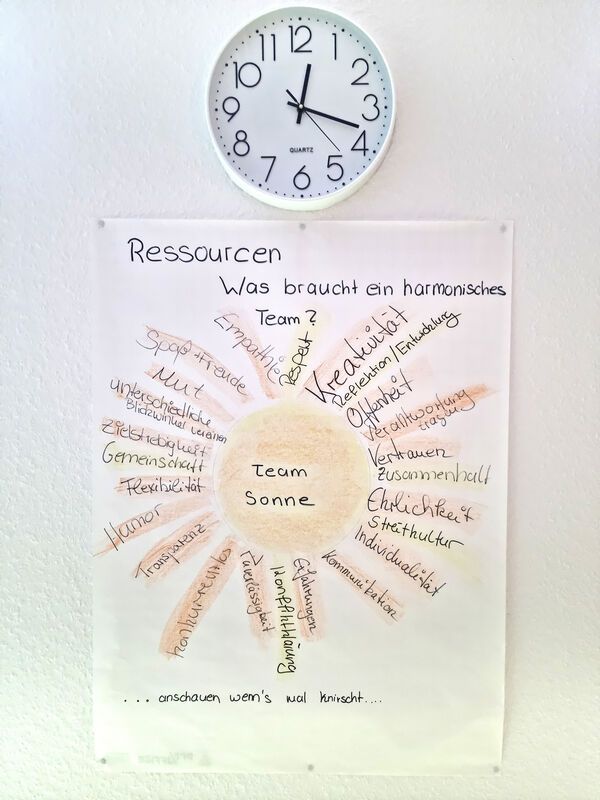 12
1
2
3
4
5
6
7
8
9
10
11
QUARTZ
Ressourcen
Was braucht ein harmonisches
Team?
Team
Sonne
Spaß + Freude
Empathie
Respekt
Kreativität
Reflektion/Entwicklung
Offenheit
Verantwortung
tragen
Vertrauen
Zusammenhalt
Ehrlichkeit
Streitkultur
Individualität
Kommunikation
Erfahrungen
Konfliktklärung
Zuverlässigkeit
Konkurrenzlos
Transparenz
Humor
Flexibilität
Gemeinschaft
Zielstrebigkeit
unterschiedliche
Blickwinkel vereinen
Mut
... anschauen wenn's mal knirscht....